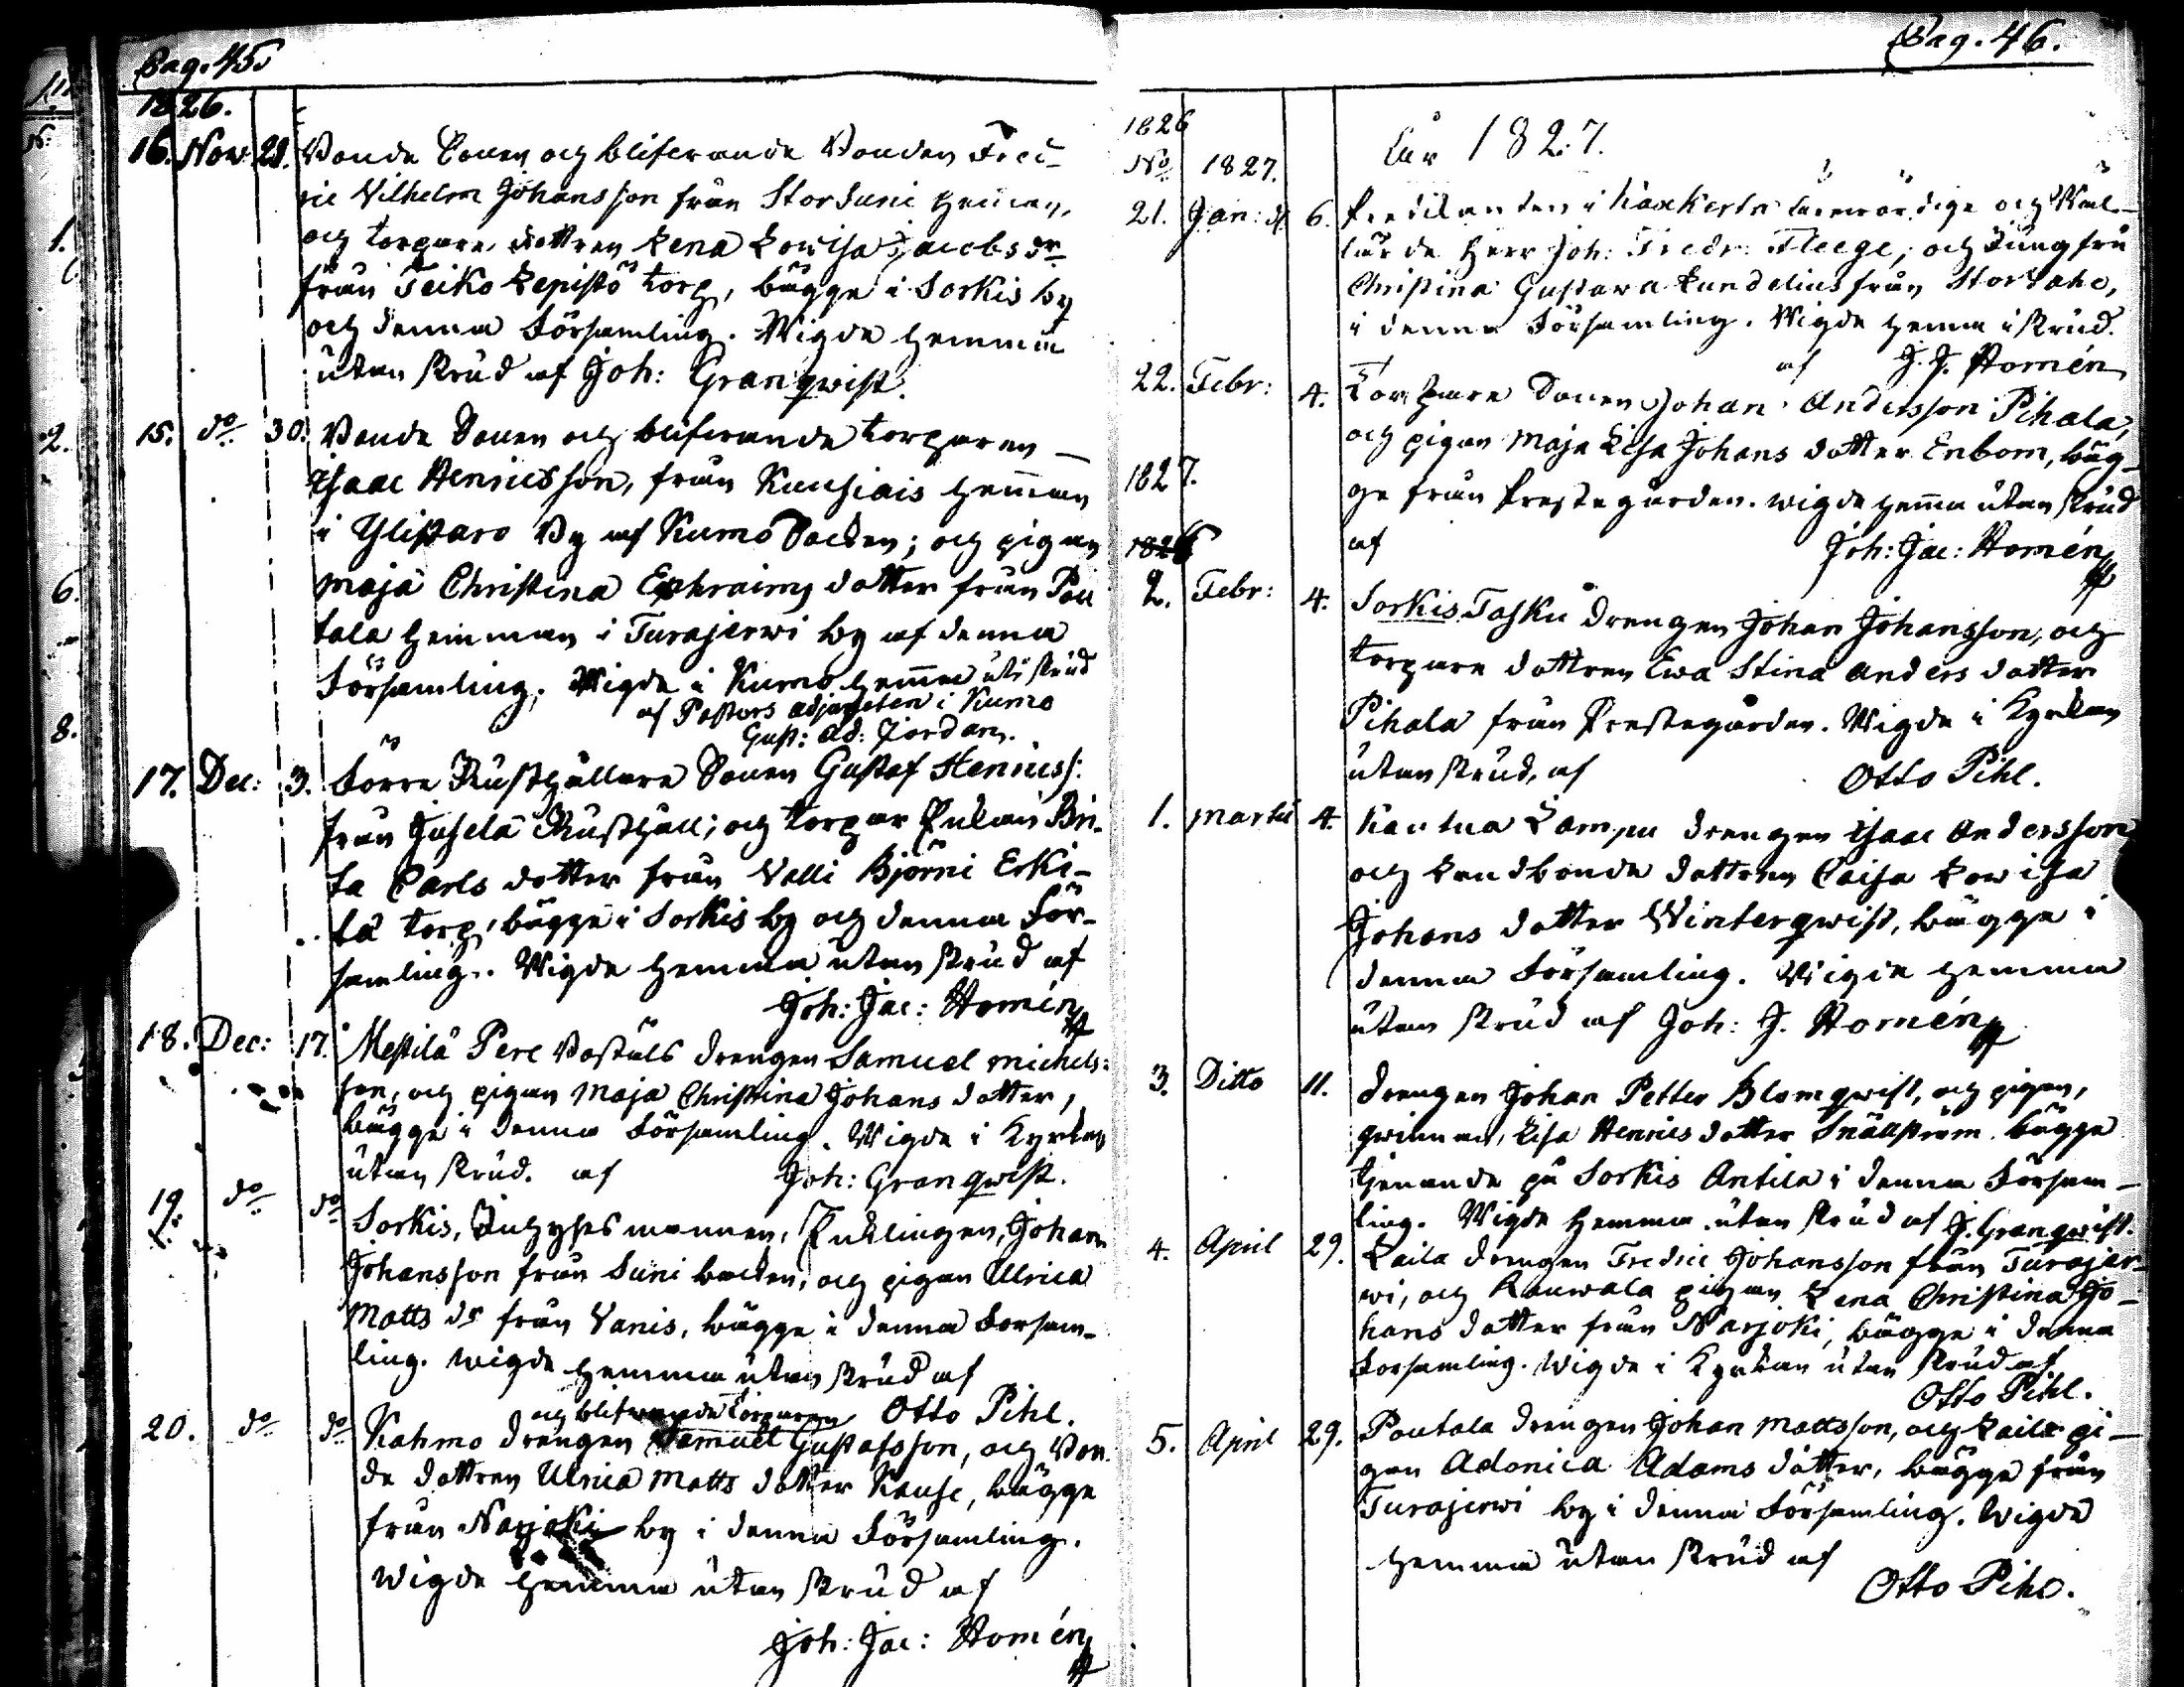 Pag. 45.
1826.
16. Nov: 28. Bonde Sonen och blifvande Bonden Fred-
ric Vilhelm Johansson från Storsuni Hemman,
och torpare dottren Lena Lowisa Jacobs dr
från Teiko Lepistö torp, bägge i Sorkis by
och denna Församling. Wigde hemma
utan skrud af Joh: Granqwist.
15. do 30. Bonde Sonen och blifvande torparen
Isaac Henricsson, från Kausiais Hemman
i Ylistaro By af Kumo Socken; och pigan
Maja Christina Ephraims dotter från Pou
tala Hemman i Turajerwi by af denna
Församling. Wigde i Kumo hemma utan skrud
af Pastors adjuncten i Kumo
Gust: Ad: Jordan.
17. Dec: 3. Förre Rusthållare Sonen Gustaf Henricss:
från Jusela Rusthåll; och torpar Enkan Bri-
ta Carls dotter från Välli Björni Erki-
lä torp, bägge i Sorkis by och denna För-
samling. Wigde hemma utan skrud af
Joh: Jac: Homén
18. Dec: 17. Mestilä Pere Bostäls drengen Samuel Michels-
son, och pigan Maja Christina Johans dotter,
bägge i denna Församling. Wigde i Kyrkan
utan skrud. af Joh: Granqwist.
19. do do Sorkis, Inhyses mannen, Enklingen, Johan
Johansson från Suni backen, och pigan Ulrica
Matts dr från Vanis, bägge i denna Forsam-
ling. Wigde hemma utan skrud af
och blifwande Torparen Otto Pihl.
20. do do Kahmo drengen Samuel Gustafsson, och Bon-
de dottren Ulrica Matts dotter Kause, bägge
från Narjoki by i denna Församling.
Wigde hemma utan skrud af
Joh: Jac: Homén
Pag. 46.
1826
No 1827. År 1827.
21. Jan: d. 6. Predikanten i Kaxkerta Ärewördige och Wäl-
lärde Herr Joh: Fredr: Fleege, och Jungfru
Christina Gustava Lundelius från Storlahe,
i denna Församling. Wigde hemma i skrud.
af J. J. Homén
22. Febr: 4. Torpare Sonen Johan Andersson Pihala,
och pigan Maja Lisa Johans dotter Enbom, bäg-
1827. ge från Prestegården. wigde hemma utan skrud
1826 af Joh: Jac: Homén
2. Febr: 4. Sorkis Tasku drengen Johan Johansson, och
torpare dottren Ewa Stina Anders dotter
Pihala från Prestegården. Wigde i Kyrkan
utan skrud, af Otto Pihl.
1. Martii 4. Kautua Lampu drengen Isaac Andersson
och Landbonde dottren Caisa Lowisa
Johans dotter Winterqwist, bägge i
denna Församling. Wigde hemma
utan skrud af Joh: J. Homén
3. Ditto 11. Drengen Johan Petter Blomqwist, och pigan,
qwinnan, Lisa Henrics dotter Snällström. bägge
tjenande på Sorkis Antila i denna Försam-
ling. Wigde hemma utan skrud af J. Granqwist.
4. April 29. Laila drengen Fredric Johansson från Turajer-
wi, och Kauwala pigan Lena Christina Jo-
hans dotter från Narjoki, bägge i denna
Forsamling. Wigde i Kyrkan utan skrud af
Otto Pihl.
5. April 29. Poutala drengen Johan Mattsson, och Laila pi-
gan Adonica Adams dotter, bägge från
Turajerwi by i denna Församling. Wigde
hemma utan skrud af
Otto Pihl.